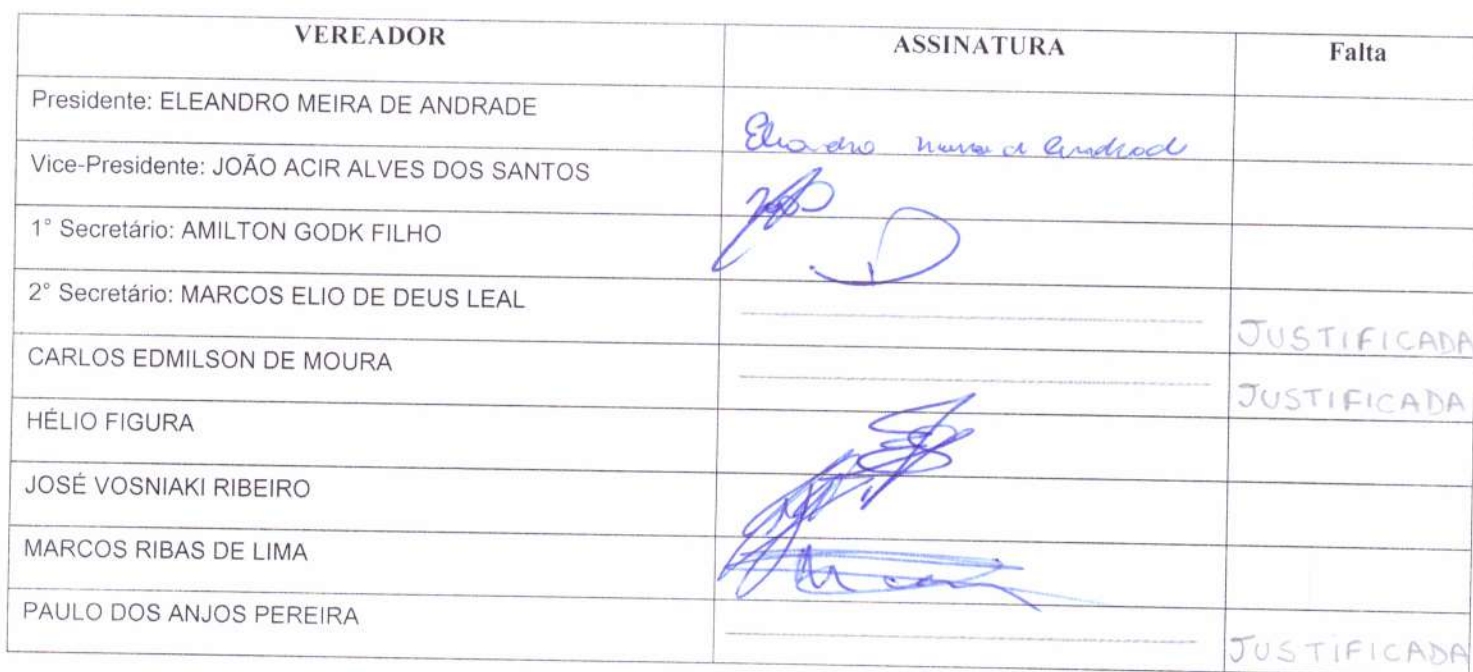 VEREADOR ASSINATURA Falta
Presidente: ELEANDRO MEIRA DE ANDRADE
Vice-Presidente: JOÃO ACIR ALVES DOS SANTOS
1° Secretário: AMILTON GODK FILHO
2° Secretário: MARCOS ELIO DE DEUS LEAL JUSTIFICADA
CARLOS EDMILSON DE MOURA JUSTIFICADA
HÉLIO FIGURA
JOSÉ VOSNIAKI RIBEIRO
MARCOS RIBAS DE LIMA
PAULO DOS ANJOS PEREIRA JUSTIFICADA